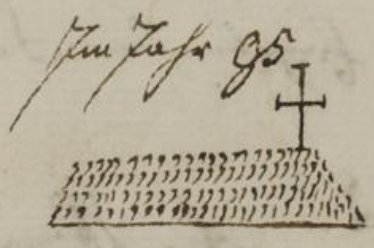 Im Jahr 95